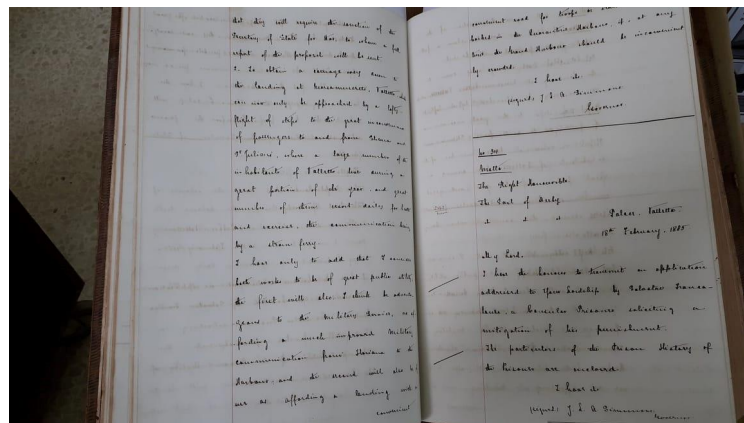 that they will require the sanction of the
Secretary of State for War, to whom a full
report of the proposal will be sent.
2. To obtain a carriage way down to
the landing at Marsamuscetto, Valletta
can now only be approached by a lofty
flight of steps to the great inconvenience
of passengers to and from Sliema and
St Julians, where a large number of the
inhabitants of Valletta live during a
great portion of the year and great
number of them resort daily for
and exercise, the communication being
by a steam ferry.
I have only to add that I consider
both works to be of great public utility,
the first will also I think be advanta-
geous to the Military Service, as af-
fording a much improved Military
communication from Floriana to the
Harbour, and the second will also be of
use as affording a landing with a
convenient
convenient road for troops or
landed in the Quarantine Harbour, if, at any
time the Grand Harbour should be inconvenient
ly crowded.
I have &c
signed: J. L. A. Simmons
Governor
No
Malta
The Right Honourable
The Earl of Derby
&c &c &c
Palace, Valletta
18th February, 1885
My Lord,
I have the honour to transmit an application
addressed to Your Lordship by Salvatore
a Prisoner soliciting a
mitigation of his punishment.
The particulars of the Prison History of
the Prisoner are enclosed.
I have &c
signed: J. L. A. Simmons
Governor